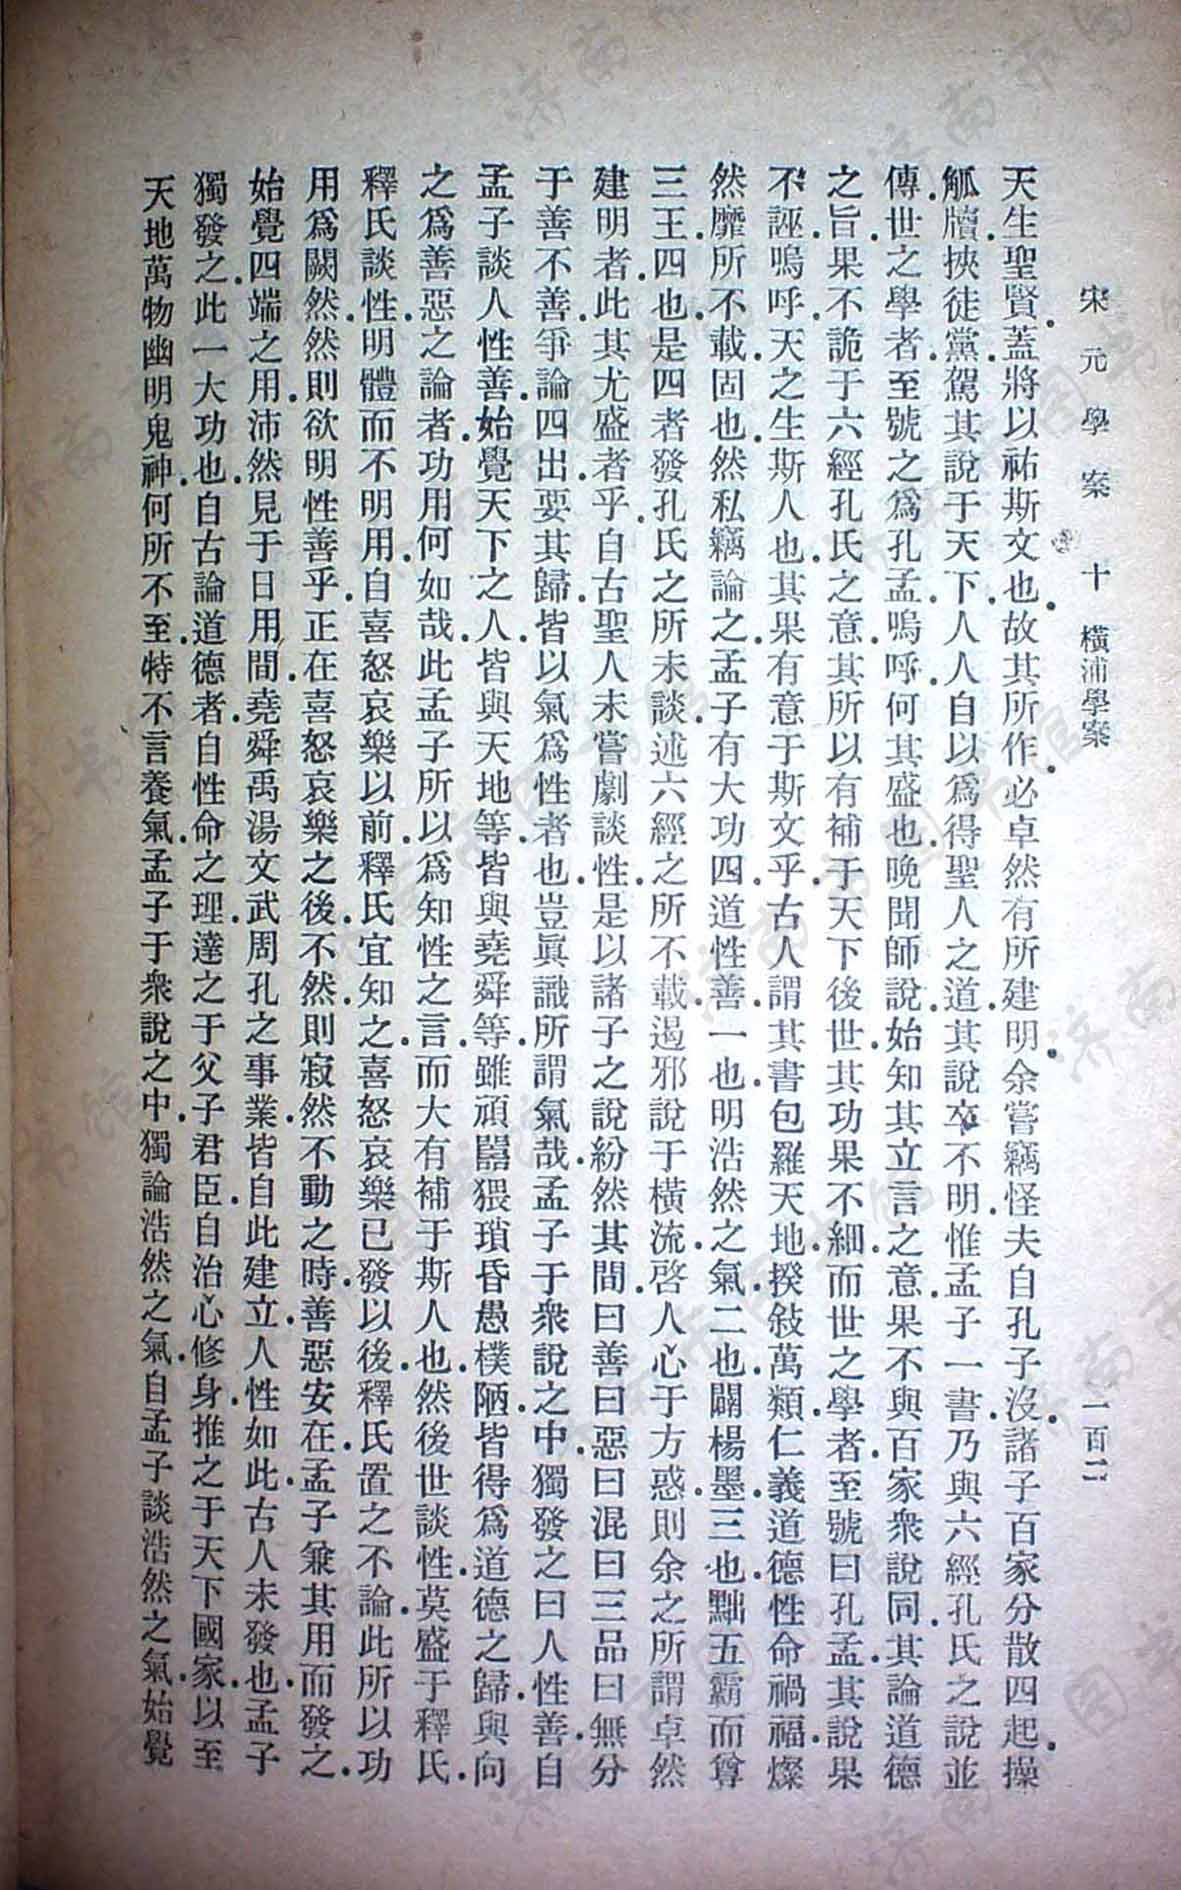 宋元學案 十 橫浦學案 一百二
天生聖賢蓋將以祐斯文也故其所作必卓然有所建明余嘗竊怪夫自孔子沒諸子百家分散四起操
觚牘挾徒黨駕其說于天下人人自以爲得聖人之道其說卒不明惟孟子一書乃與六經孔氏之說並
傳世之學者至號之爲孔孟嗚呼何其盛也晚聞師說始知其立言之意果不與百家衆說同其論道德
之旨果不詭于六經孔氏之意其所以有補于天下後世其功果不細而世之學者至號曰孔孟其說果
不誣嗚呼天之生斯人也其果有意于斯文乎古人謂其書包羅天地揆敍萬類仁義道德性命禍福燦
然靡所不載固也然私竊論之孟子有大功四道性善一也明浩然之氣二也闢楊墨三也黜五霸而尊
三王四也是四者發孔氏之所未談述六經之所不載遏邪說于橫流啓人心于方惑則余之所謂卓然
建明者此其尤盛者乎自古聖人未嘗劇談性是以諸子之說紛然其間曰善曰惡曰混曰三品曰無分
于善不善爭論四出要其歸皆以氣爲性者也豈眞識所謂氣哉孟子于衆說之中獨發之曰人性善自
孟子談人性善始覺天下之人皆與天地等皆與堯舜等雖頑嚚猥瑣昏愚樸陋皆得爲道德之歸與向
之爲善惡之論者功用何如哉此孟子所以爲知性之言而大有補于斯人也然後世談性莫盛于釋氏
釋氏談性明體而不明用自喜怒哀樂以前釋氏宜知之喜怒哀樂已發以後釋氏置之不論此所以功
用爲闕然然則欲明性善乎正在喜怒哀樂之後不然則寂然不動之時善惡安在孟子兼其用而發之
始覺四端之用沛然見于日用間堯舜禹湯文武周孔之事業皆自此建立人性如此古人未發也孟子
獨發之此一大功也自古論道德者自性命之理達之于父子君臣自治心修身推之于天下國家以至
天地萬物幽明鬼神何所不至特不言養氣孟子于衆說之中獨論浩然之氣自孟子談浩然之氣始覺